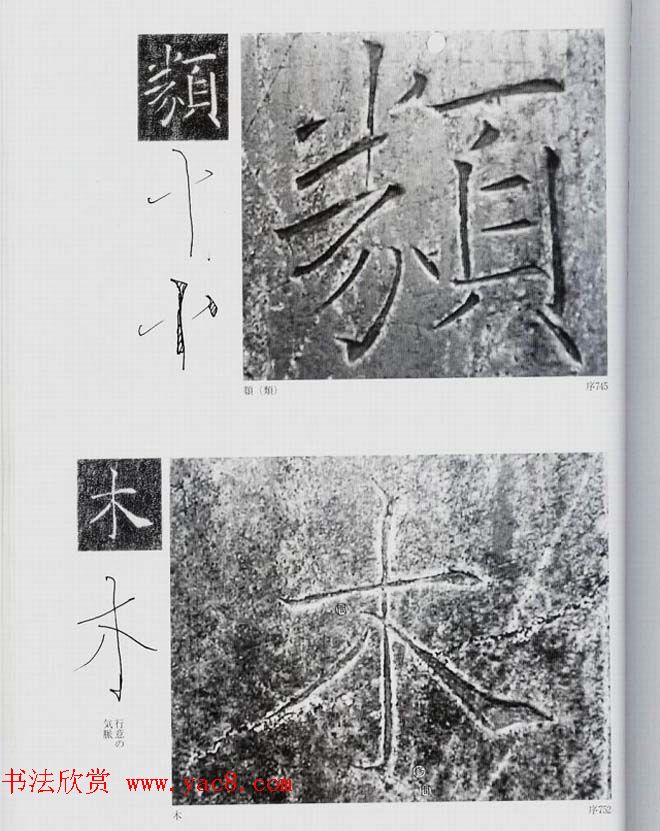 類（類）
序745
木
行意の
気脈
木
序752
书法欣赏 www.yac8.com